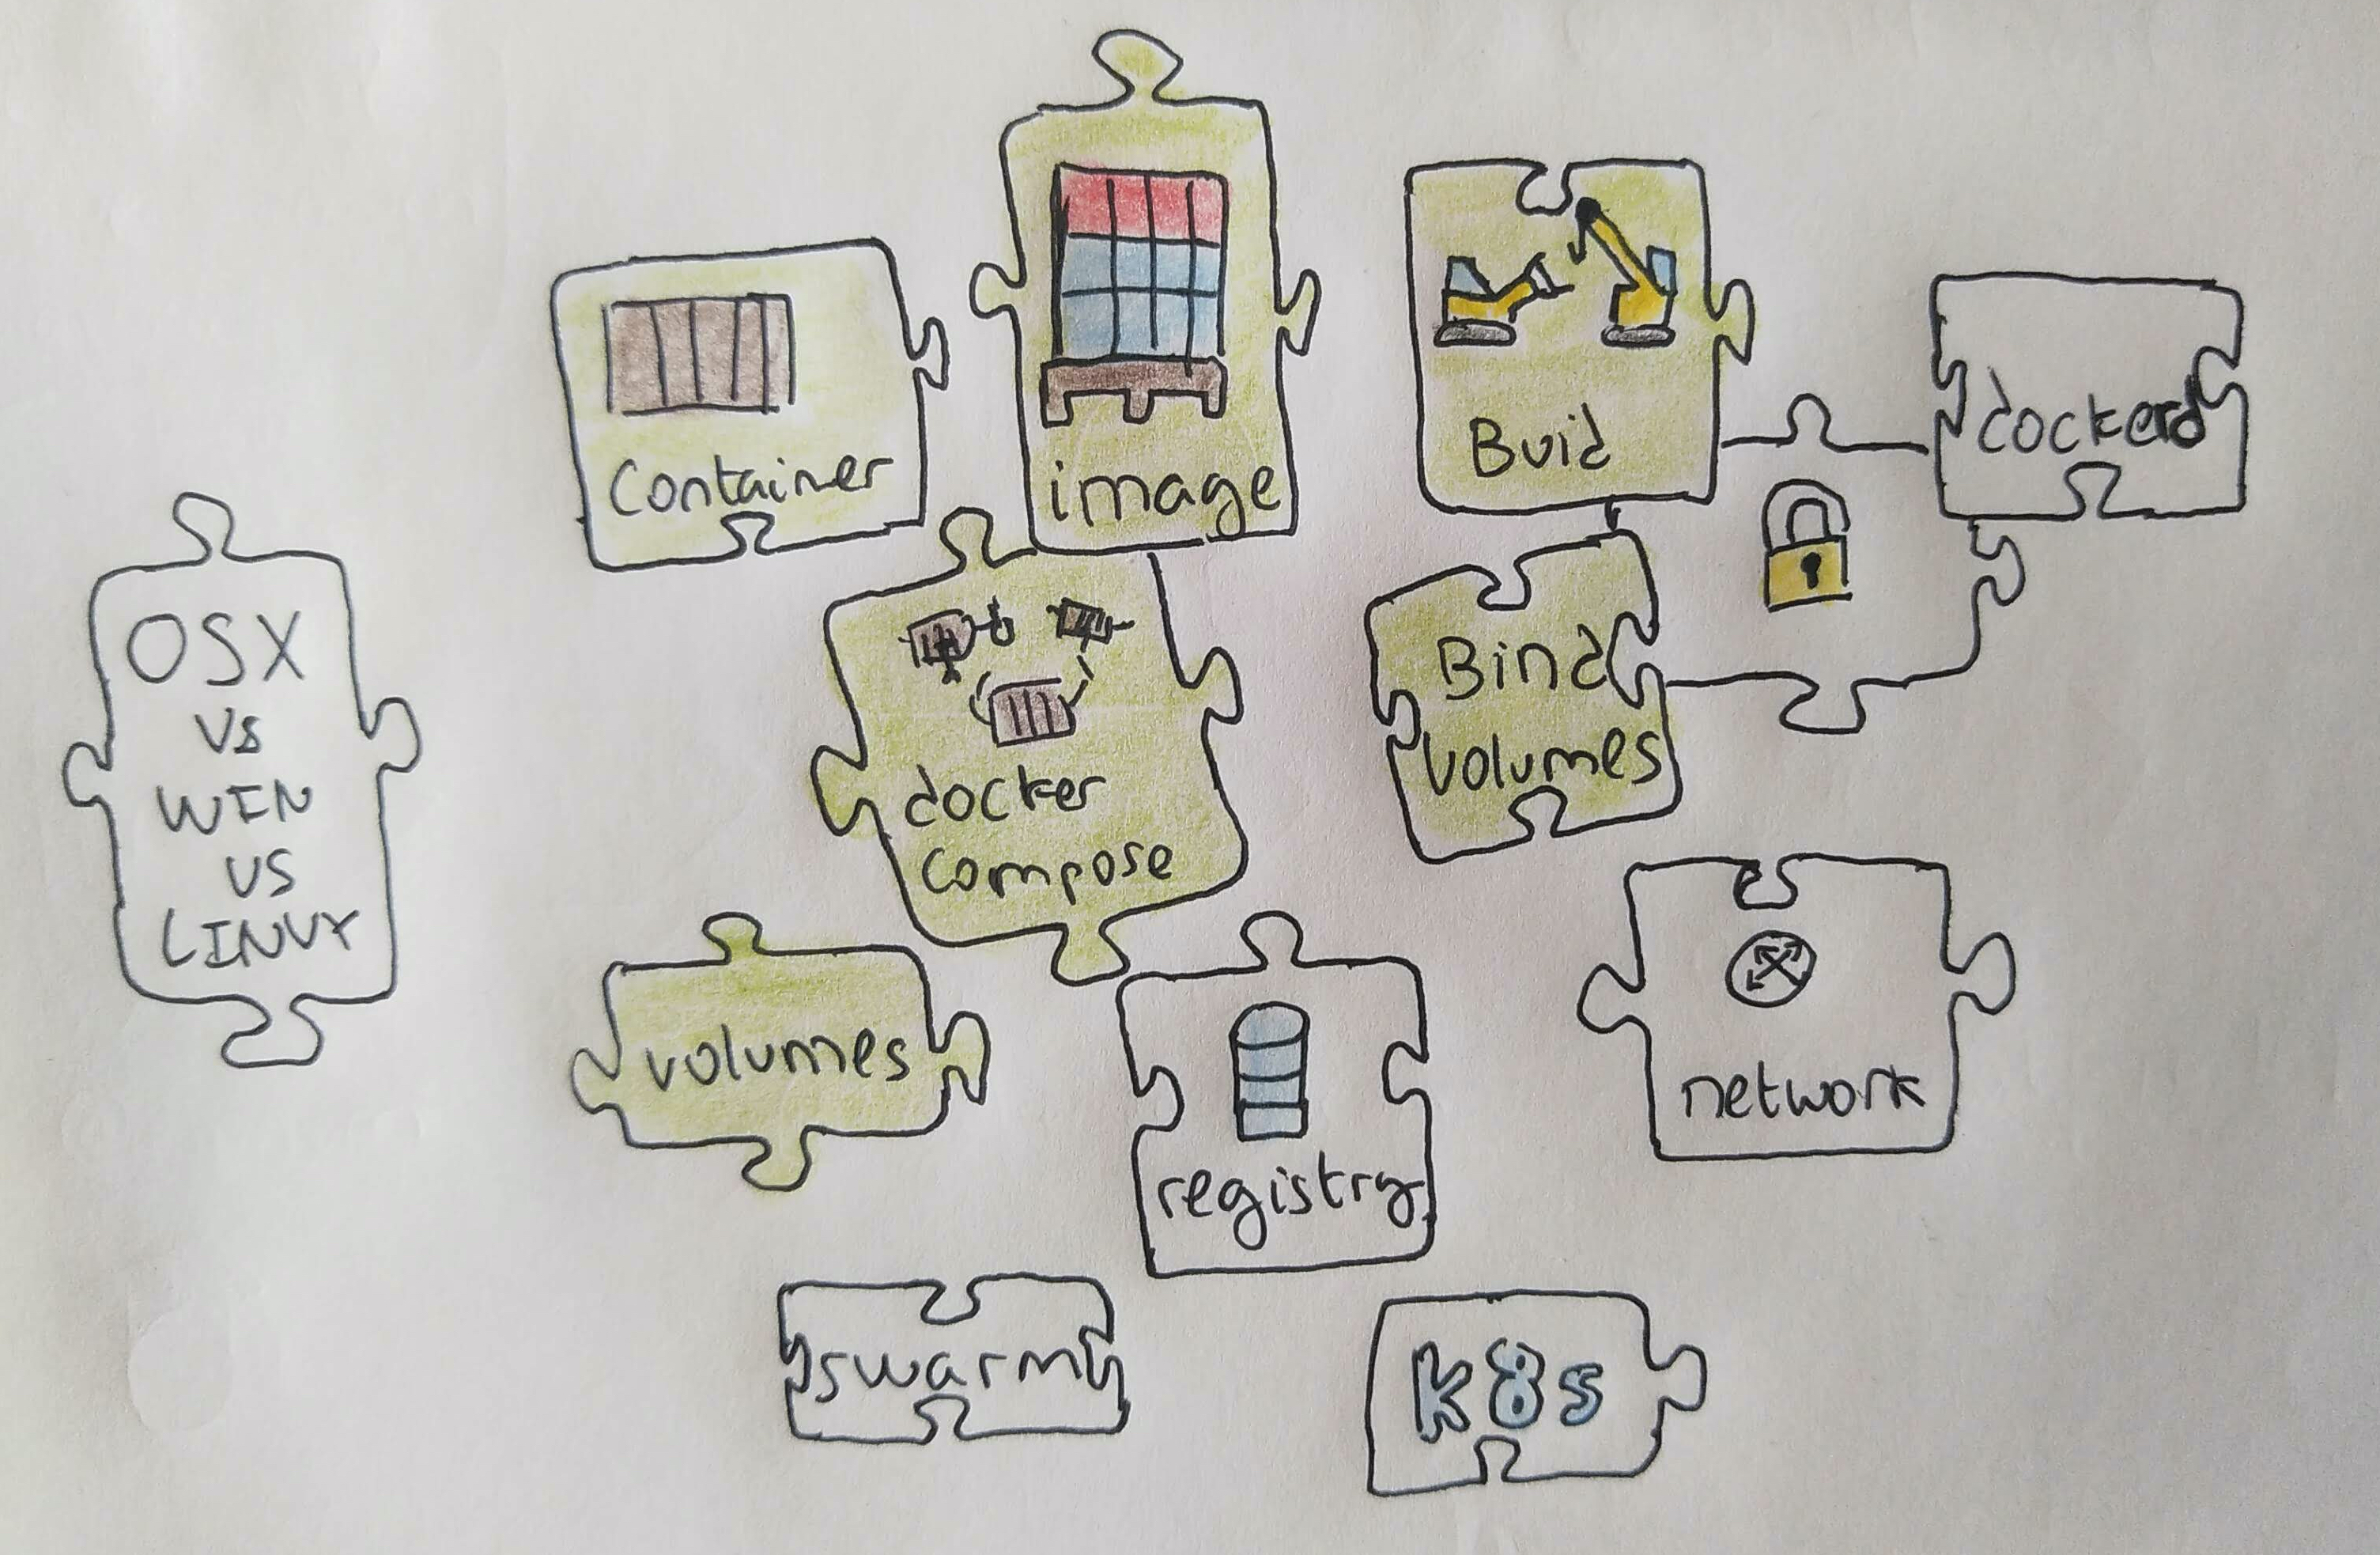 image
Container
Buid
dockerd
OSX
vs
WIN
vs
LINUX
docker
compose
Bind
volumes
volumes
registry
network
swarm
k8s